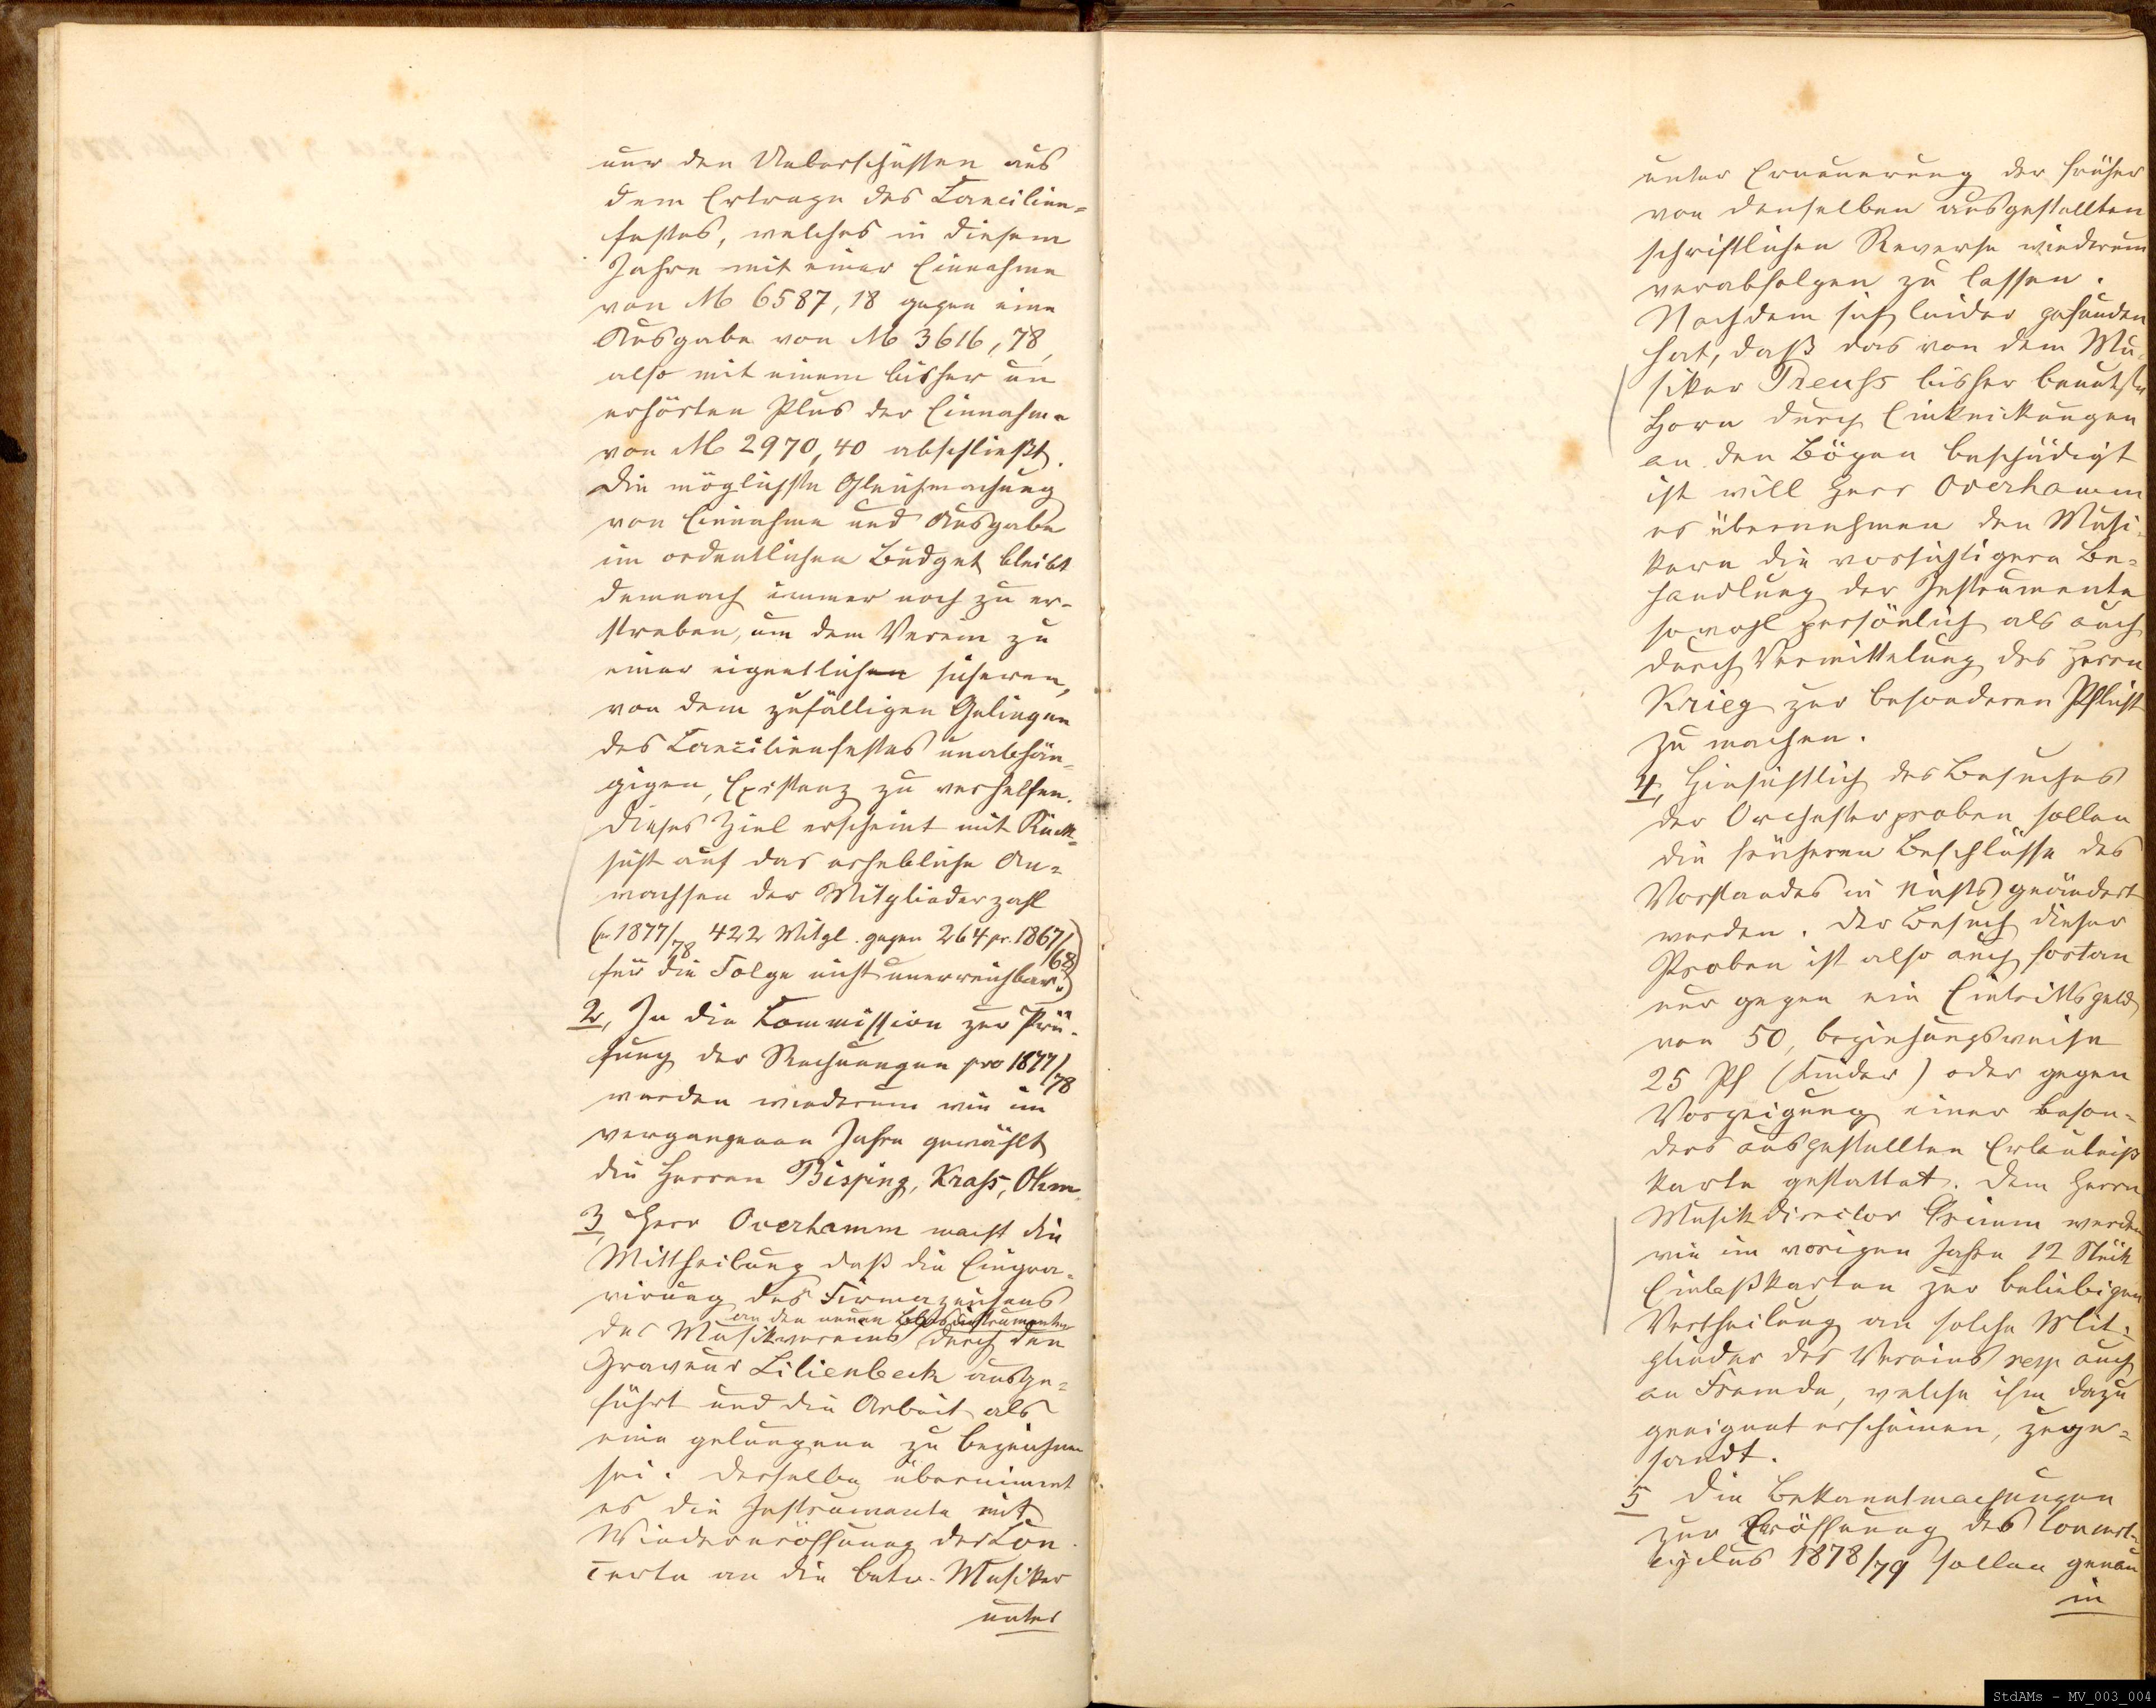 nur den Ueberschüssen aus
dem Ertrage des Caecilien-
festes, welches in diesem
Jahre mit einer Einnahme
von M 6587,18 gegen eine
Ausgabe von M 3616,78,
also mit einem bisher un
erhörten Plus der Einnahme
von M 2970,40 abschließt.
Die möglichste Gleichmachung
von Einnahme und Ausgabe
im ordentlichen Budget bleibt
demnach immer noch zu er-
streben, um dem Verein zu
einer eigentlichen sicheren,
von dem zufälligen Gelingen
des Caecilienfestes unabhän-
gigen, Existenz zu verhelfen.
Dieses Ziel erscheint mit Rück-
sicht auf das erhebliche An-
wachsen der Mitgliederzahl
(pr 1877/78 422 Mitgl. gegen 264 pr. 1867/68)
für die Folge nicht unerreichbar.
2, In die Commission zur Prü-
fung der Rechnungen pro 1877/78
werden wiederum wie im
vergangenen Jahre gewählt
die Herren Bisping, Krass, Ohm.
3, Herr Overhamm macht die
Mittheilung daß die Eingra-
virung des Firmazeichens
an den neuen Blasinstrumenten
des Musikvereins durch den
Graveur Lilienbeck ausge-
führt und die Arbeit als
eine gelungene zu bezeichnen
sei. Derselbe übernimmt
es die Instrumente mit
Wiedereröffnung der Con-
certe an die betr. Musiker
unter
unter Erneuerung der früher
von denselben ausgestellten
schriftlichen Reverse wiederum
verabfolgen zu lassen.
Nachdem sich leider gefunden
hat, daß das von dem Mu-
siker Preuss bisher benutzte
Horn durch Einknickungen
an den Bögen beschädigt
ist will Herr Overhamm
es übernehmen den Musi-
kern die vorsichtigere Be-
handlung der Instrumente
sowohl persönlich als auch
durch Vermittelung des Herrn
Krieg zur besonderen Pflicht
zu machen.
4, Hinsichtlich des Besuches
der Orchesterproben sollen
die früheren Beschlüsse des
Vorstandes in Nichts geändert
werden. Der Besuch dieser
Proben ist also auch fortan
nur gegen ein Eintrittsgeld
von 50, beziehungsweise
25 Pf (Kinder) oder gegen
Vorzeigung einer beson-
ders ausgestellten Erlaubniß
karte gestattet. Dem Herrn
Musikdirector Grimm werden
wie im vorigen Jahre 12 Stück
Einlaßkarten zur beliebigen
Vertheilung an solche Mit-
glieder des Vereins resp auch
an Fremde, welche ihm dazu
geeignet erscheinen, zuge-
sandt.
5 Die Bekanntmachungen
zur Eröffnung des Concert-
cyclus 1878/79 sollen genau
in
StdAMs - MV_003_004